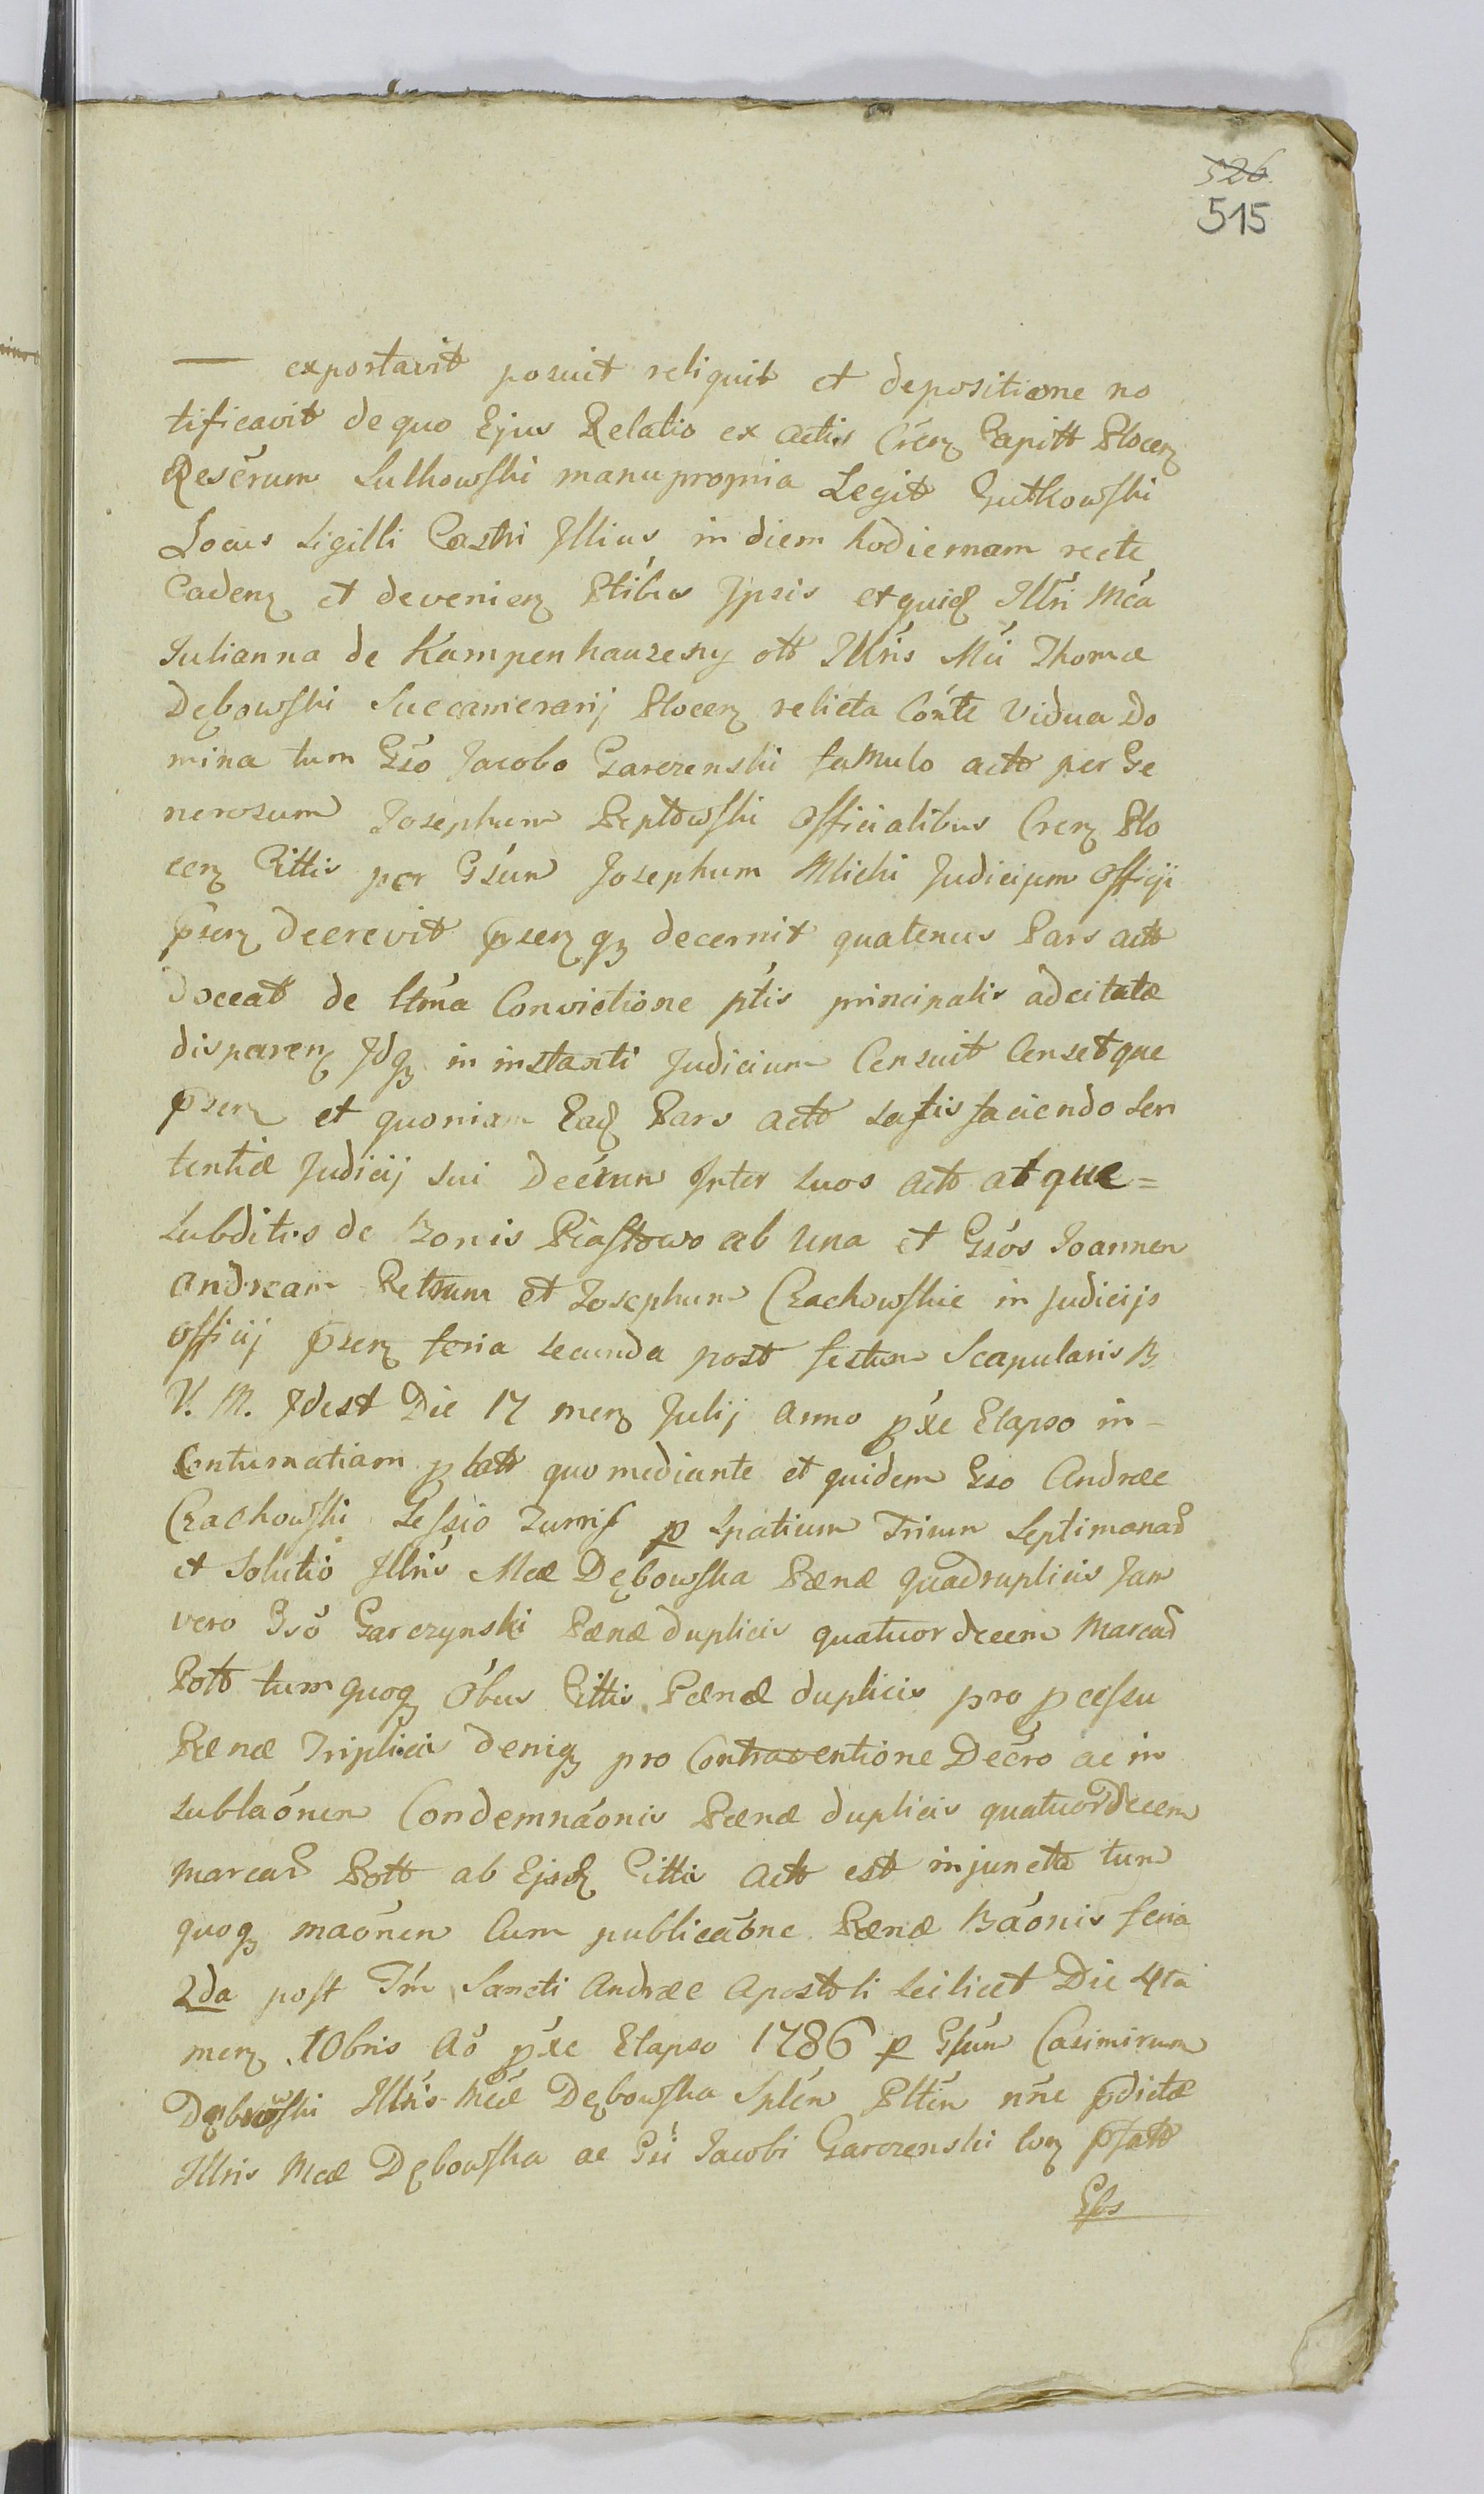 526
515
— exportavit posuit reliquit et depositione no
tificavit de quo Ejus Relatio ex actis Crēn Capitt Plocen
Resērum Sulkowski manu propria Legit Gutkowski
Locus Sigilli Castri Illius in diem hodiernam recte
Caden et devenien Ptibus Ipsis et quid Illri Mća
Julianna de Kampenhauzeny ott Illris Mći Thomæ
Dębowski Succamerarij Plocen relicta Cónte Vidua Do
mina tum Gso Jacobo Garczenski famulo actt per Ge
nerosum Josephum Peptowski Officialibus Cren Plo
cen Cittis per Gsum Josephum Mlicki Judicium Officij
psen decrevit psen qz decernit quatenus Pars actt
doceat de ltma Convictione ptis principalis adcitatæ
disparen Idqz in instanti Judicium Censuit Censetque
psen et quoniam Ead Pars actt satisfaciendo Sen
tentiæ Judicij sui Decrum Inter suos actt atque =
Subditos de bonis Piastowo ab una et Gsos Joannem
Andream Petrum et Josephum Czachowskie in Judicijs
Officij psen feria secunda post festum Scapularis B
V. M. Idest Die 17 men Julij anno pxe Elapso in -
Contumatiam p latt quo mediante et quidem Gso Andreæ
Czachowski Sessio Turris p Spatium Trium Septimanar
et Solutio Illris Mcæ Dębowska Pænæ quadruplicis Jam
vero Gso Garczynski Pænæ duplicis quatuordecem Marcar
Pott tum quoqz óbus Cittis Pænæ duplicis pro pcessu
Pænæ Triplicis deniqz pro Contraventione Decro ac in
sublaónem Condemnáonis Pænæ duplicis quatuordecem
marcar Pott ab Ejsd Cittis actt est injuncta tum
quoqz maónem Cum publicaóne Pænæ Báonis feria
2da post Fm Sancti Andreæ Apostoli Scilicet Die 4ta
men 10bris Ao pxe Elapso 1786 p Gsum Casimirum
Dębowski Illris Mcæ Dębowska Splen Pltén nne pdictæ
Illris Mcæ Dębowska ac Gsi Jacobi Garczenski con psatt
Gsos